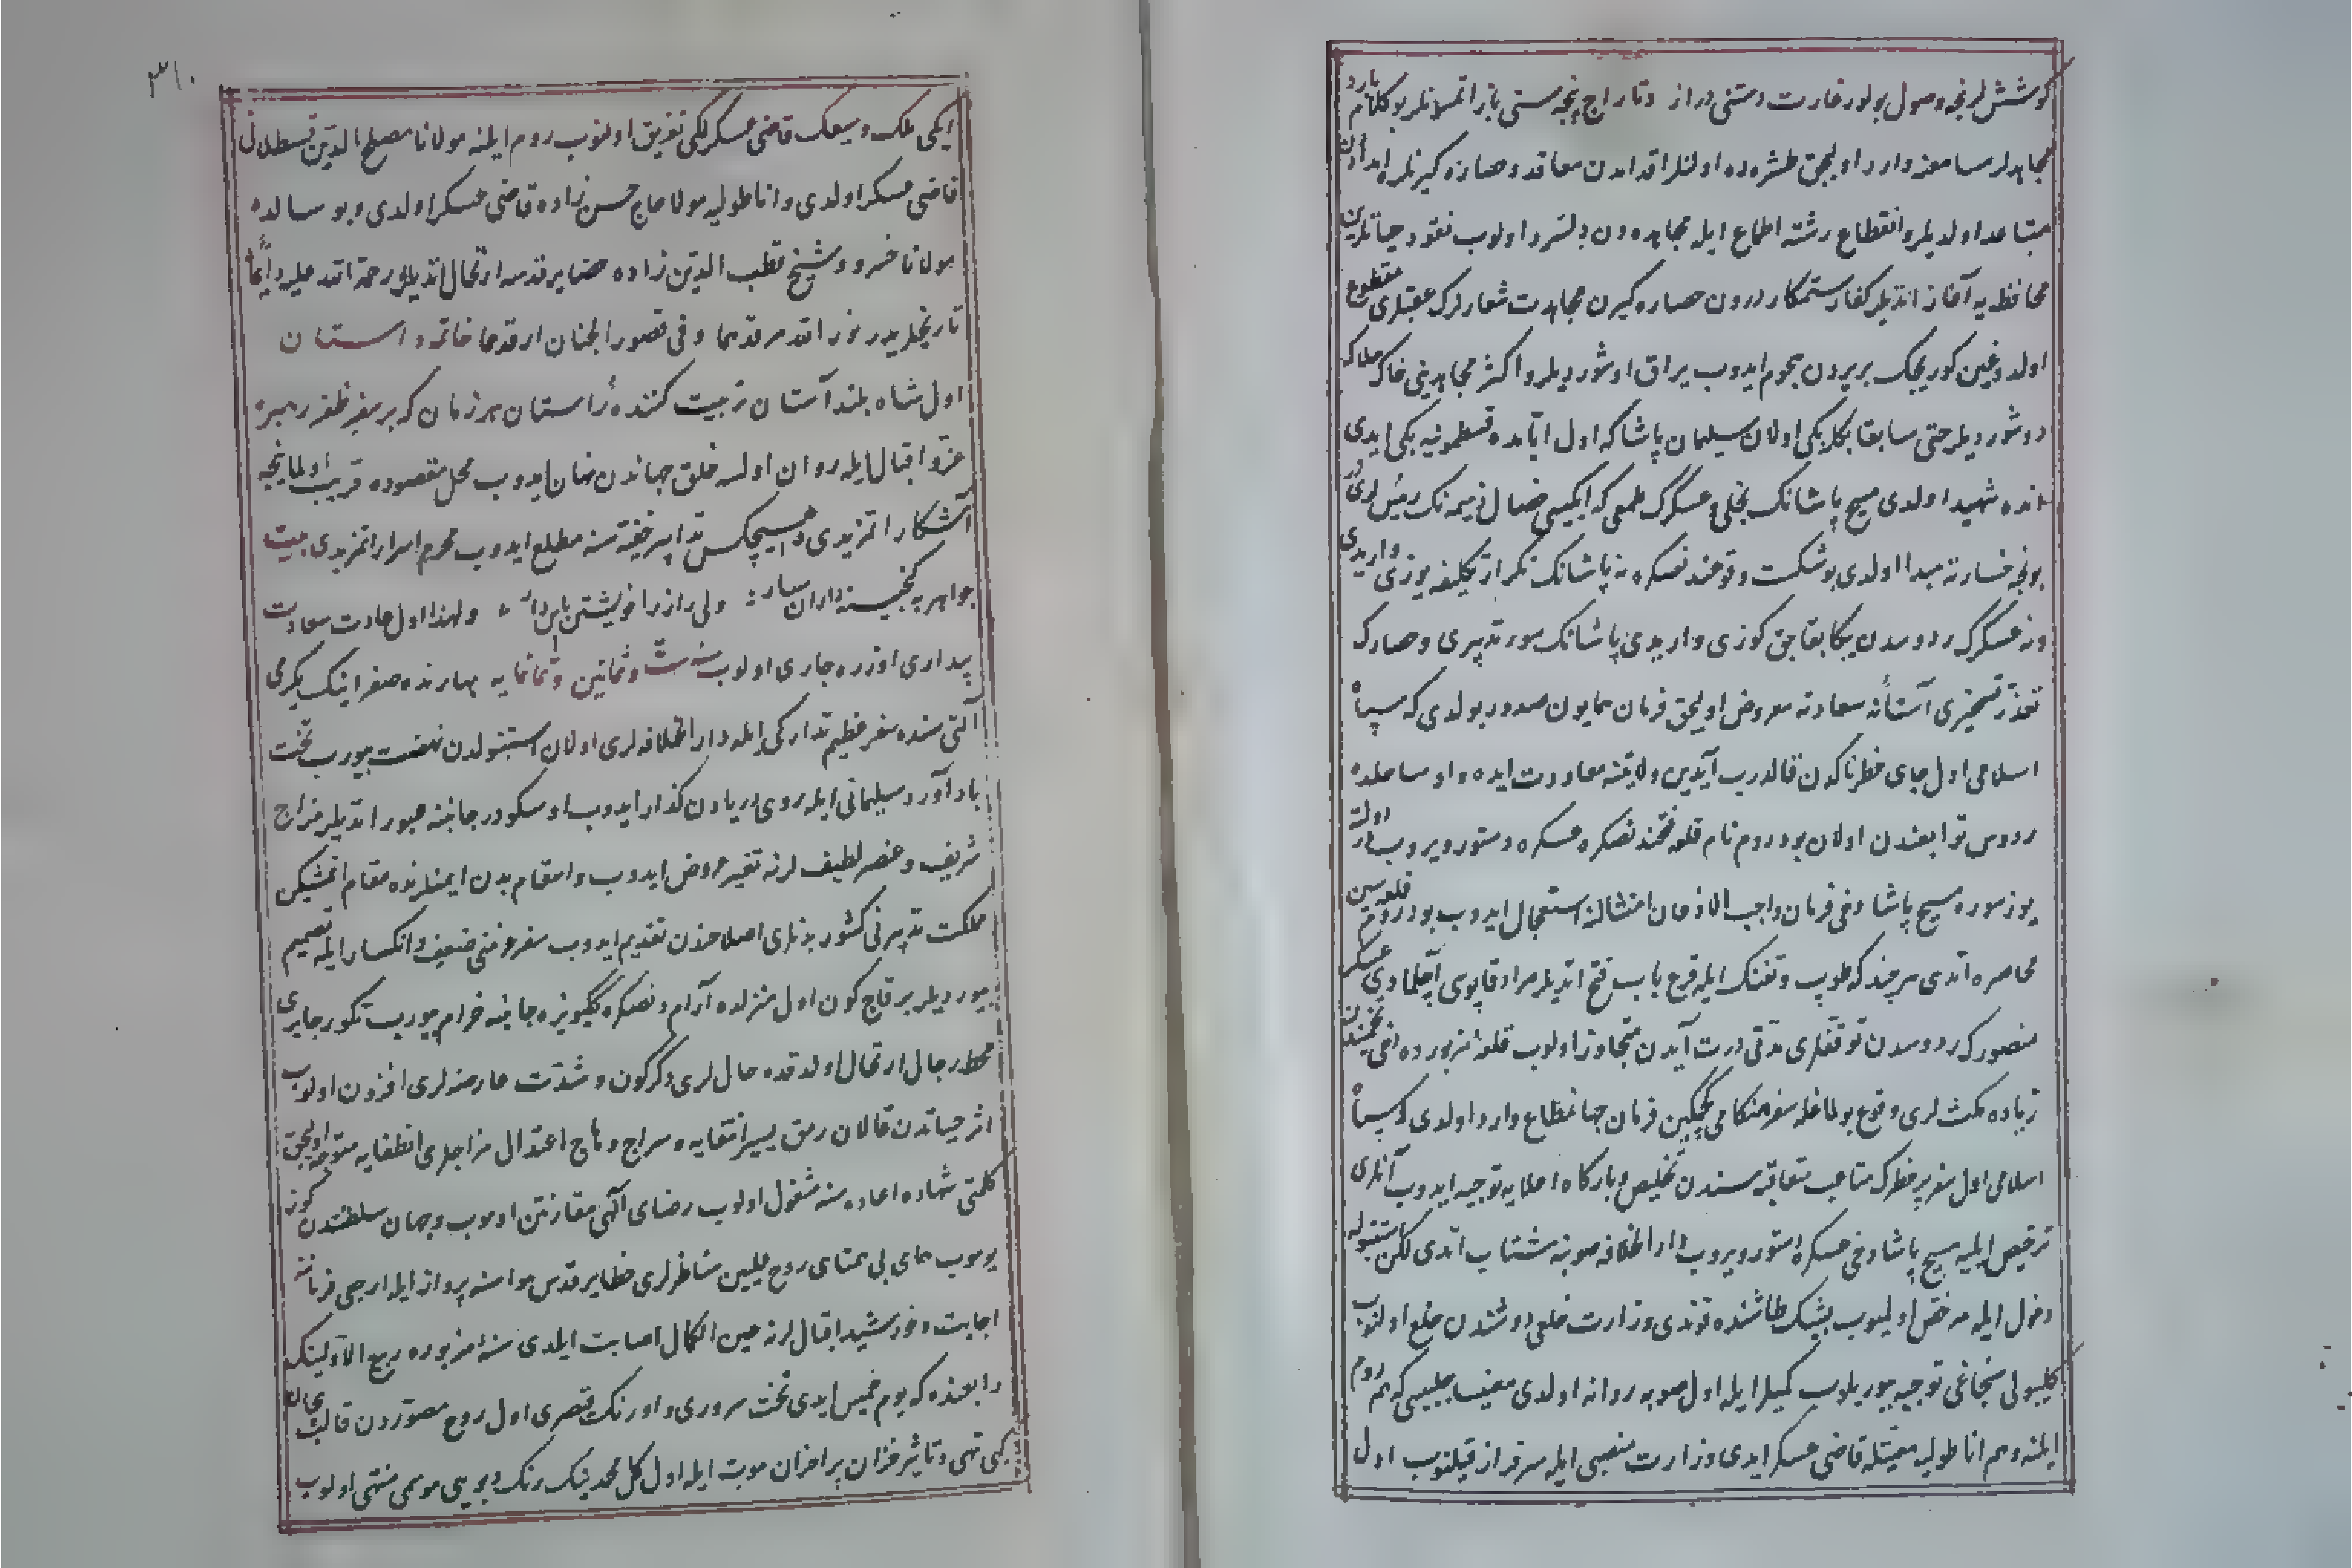 كوشش لرنجه وصول بولور غارت دستنى دراز وتاراج پنجه سنى باز اتمسونلر بو كلام بارد
مجاهدلر سامعنه وارد اوليجق طشره ده اولنلر اقدامدن معاقد وحصاره كيرنلر
متباعد اولديلر وانقطاع رشته اطماع ايله مجاهده دن دلسرد اولوب نقود حياتلرين
محافظه يه آغاز اتديلر كفار ستمكار درون حصاره كيرن مجاهدت شعارلرك عقبلرى مقطوع
اولدوغين كوريجك بربردن هجوم ايدوب يراق اوشورديلر واكثر مجاهدينى خاك هلاكه
دوشورديلر حتى سابقا بكلربكى اولان سليمان پاشا كه اول اثناده قسطمونيه بكى ايدى
انده شهيد اولدى مسيح پاشانك بخلى وعسكرك طمعى كه ايكيسى خصال ذميمه نك رئيس لرى در
بونجه خسارته مبدا اولدى بو شكست وقوعندنصكره نه پاشانك تكرار تكليفه يوزى وار يدى
ونه عسكرك ردوسدن يكا بقاجق كوزى وار يدى پاشانك سوء تدبيرى وحصارك
تعذر تسخيرى آستانه سعادته معروض اوليجق فرمان همايون صدور بولدى كه سپاه
اسلامى اول جاى خطرناكدن قالدرب آيدين ولايتنه معاودت ايده واو ساحلده
ردوس توابعندن اولان بودروم نام قلعه فتحندنصكره عسكره دستور ويروب دولته
يوز سوره مسيح پاشا دخى فرمان واجب الاذعان امتثالنه استعجال ايدوب بودروم قلعه سين
محاصره اتدى هرچند كه طوپ وتفنك ايله قرع باب فتح اتديلر مراد قاپوسى آچلمادى عسكر
منصورك ردوسدن توقفلرى مدتى درت آيدن متجاوز اولوب قلعۀ مزبوره ده دخى
زياده مكث لرى وقوع بولماغله سفر هنكامى كچيكين فرمان جهانمطاع وارد اولدى كه سپاه
اسلامى اول سفر پرخطرك متاعب متعاقبه سندن تخليص وباركاه اعلايه توجيه ايدوب آنلرى
ترخيص ايليه مسيح پاشا دخى عسكره دستور ويروب دار الخلافه صوبنه شتاب اتدى لكن استنبوله
دخول ايله مرخص اوليوب بشيكطاشنده قوندى وزارت خلعى دوشندن خلع اولنوب
كليبولى سنجاغى توجيه بيوريلوب كميلر ايله اول صوبه روانه اولدى مغنيسا چلبيسى كه هم روم
ايلنه وهم اناطوليه معيتله قاضى عسكر ايدى وزارت منصبى ايله سرفراز قيلنوب اول
٣١٠
ايكى ملك وسيعك قاضى عسكرلكى تفريق اولنوب روم ايلنه مولانا مصلح الدين قسطلانى
قاضى عسكر اولدى واناطوليه مولا حاج حسن زاده قاضى عسكر اولدى وبو سالده
مولانا خسرو وشيخ قطب الدين زاده حضاير قدسه ارتحال اتديلر رحمة الله عليه دائما
تاريخلريدر نور الله مرقدهما وفى قصور الجنان ارقدهما خاتمه داستان
اول شاه بلند آستان تربيت كننده راستان هر زمان كه بر سفر ظفر رهبره
عز واقبال ايله روان اولسه خلق جهاندن نهان ايدوب محل مقصوده قريب اولماينجه
آشكارا اتمزيدى وهيچكس تدابير خفيه سنه مطلع ايدوب محرم اسرار اتمزيدى بيت
جواهر به گنجينه داران سپار ولى راز را خويشتن پاس دار ولهذا اول عادت سعادت
پيدارى اوزره جارى اولوب سنه ست وثمانين وثمانمايه بهارنده صفر آينك يكرمى
آلتى سنده سفر عظيم تداركى ايله دار الخلافه لرى اولان استنبولدن نهضت بيورب تخت
بادآورد سليمانى ايله روى دريادن گذار ايدوب اوسكودر جانبنه عبور اتديلر مزاج
شريف وعنصر لطيف لرنه تغير عروض ايدوب واسقام بدن ايمنلرنده مقام اتمشيكن
مملكت تدبيرنى كشور بدنلرى اصلاحندن تقديم ايدوب سفر عزمنى ضعف وانكسار ايله تصميم
بيورديلر بر قاچ كون اول منزلده آرام ونصكره ككبويزه جانبنه خرام بيورب تكور چايرى
محط رجال ارتحال اولدقده حال لرى دكركون وشدت عارضه لرى افزون اولوب
اثر حياتدن قالان رمق يسير انتفايه وسراج وهاج اعتدال مزاجلرى انطفايه متوجه اوليجق
كلمتى شهاده اعاده سنه مشغول اولوب رضاى آلهى مقارنتن اومو وب وجهان سلطنتدن كوز
يوموب هماى بى همتاى روح عليين مناظرلرى حظاير قدس هواسنه پرواز ايله ارجعى فرماننه
اجابت وخورشيد اقبال لرنه عين الكمال اصابت ايلدى سنۀ مزبوره ربيع الاولينك
رابعنده كه يوم خميس ايدى تخت سرورى واورنك قيصرى اول روح مصوردن قالب
كبى تهى وتاثير خزان پر احزان موت ايله اول كل محمدينك رنك وبويى موسمى منتهى اولوب